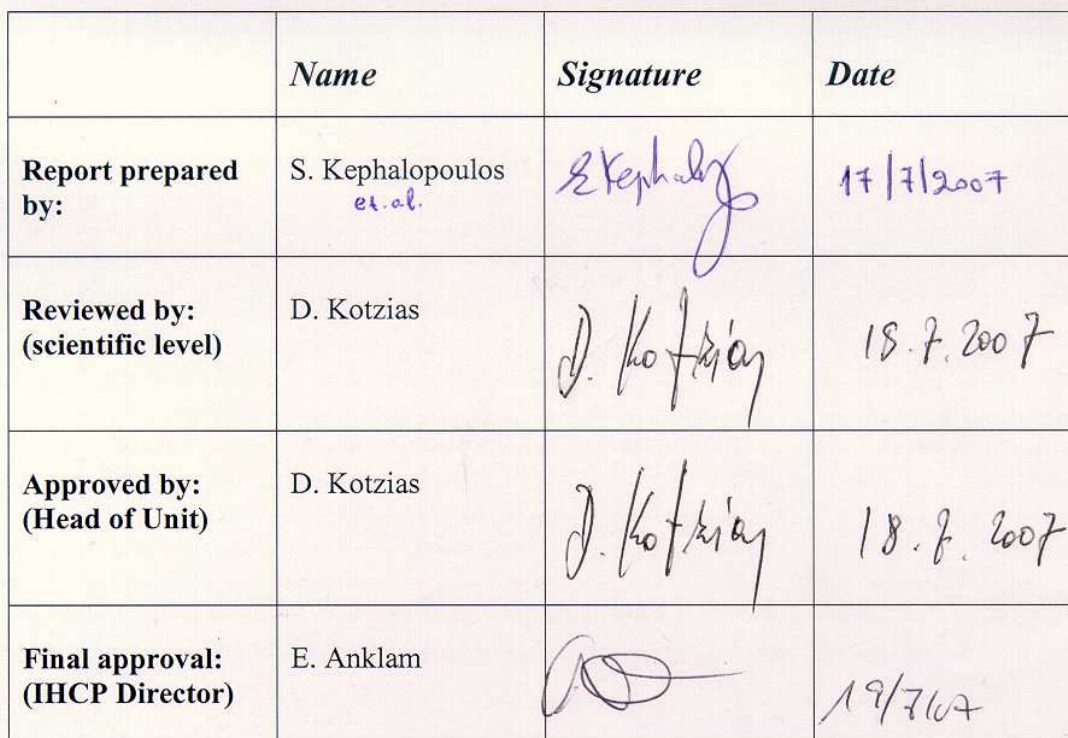 Name Signature Date
Report prepared by: S. Kephalopoulos et.al. SKephalop 17/7/2007
Reviewed by: (scientific level) D. Kotzias D. Kotzias 18.7.2007
Approved by: (Head of Unit) D. Kotzias D. Kotzias 18.7.2007
Final approval: (IHCP Director) E. Anklam 19/7/07